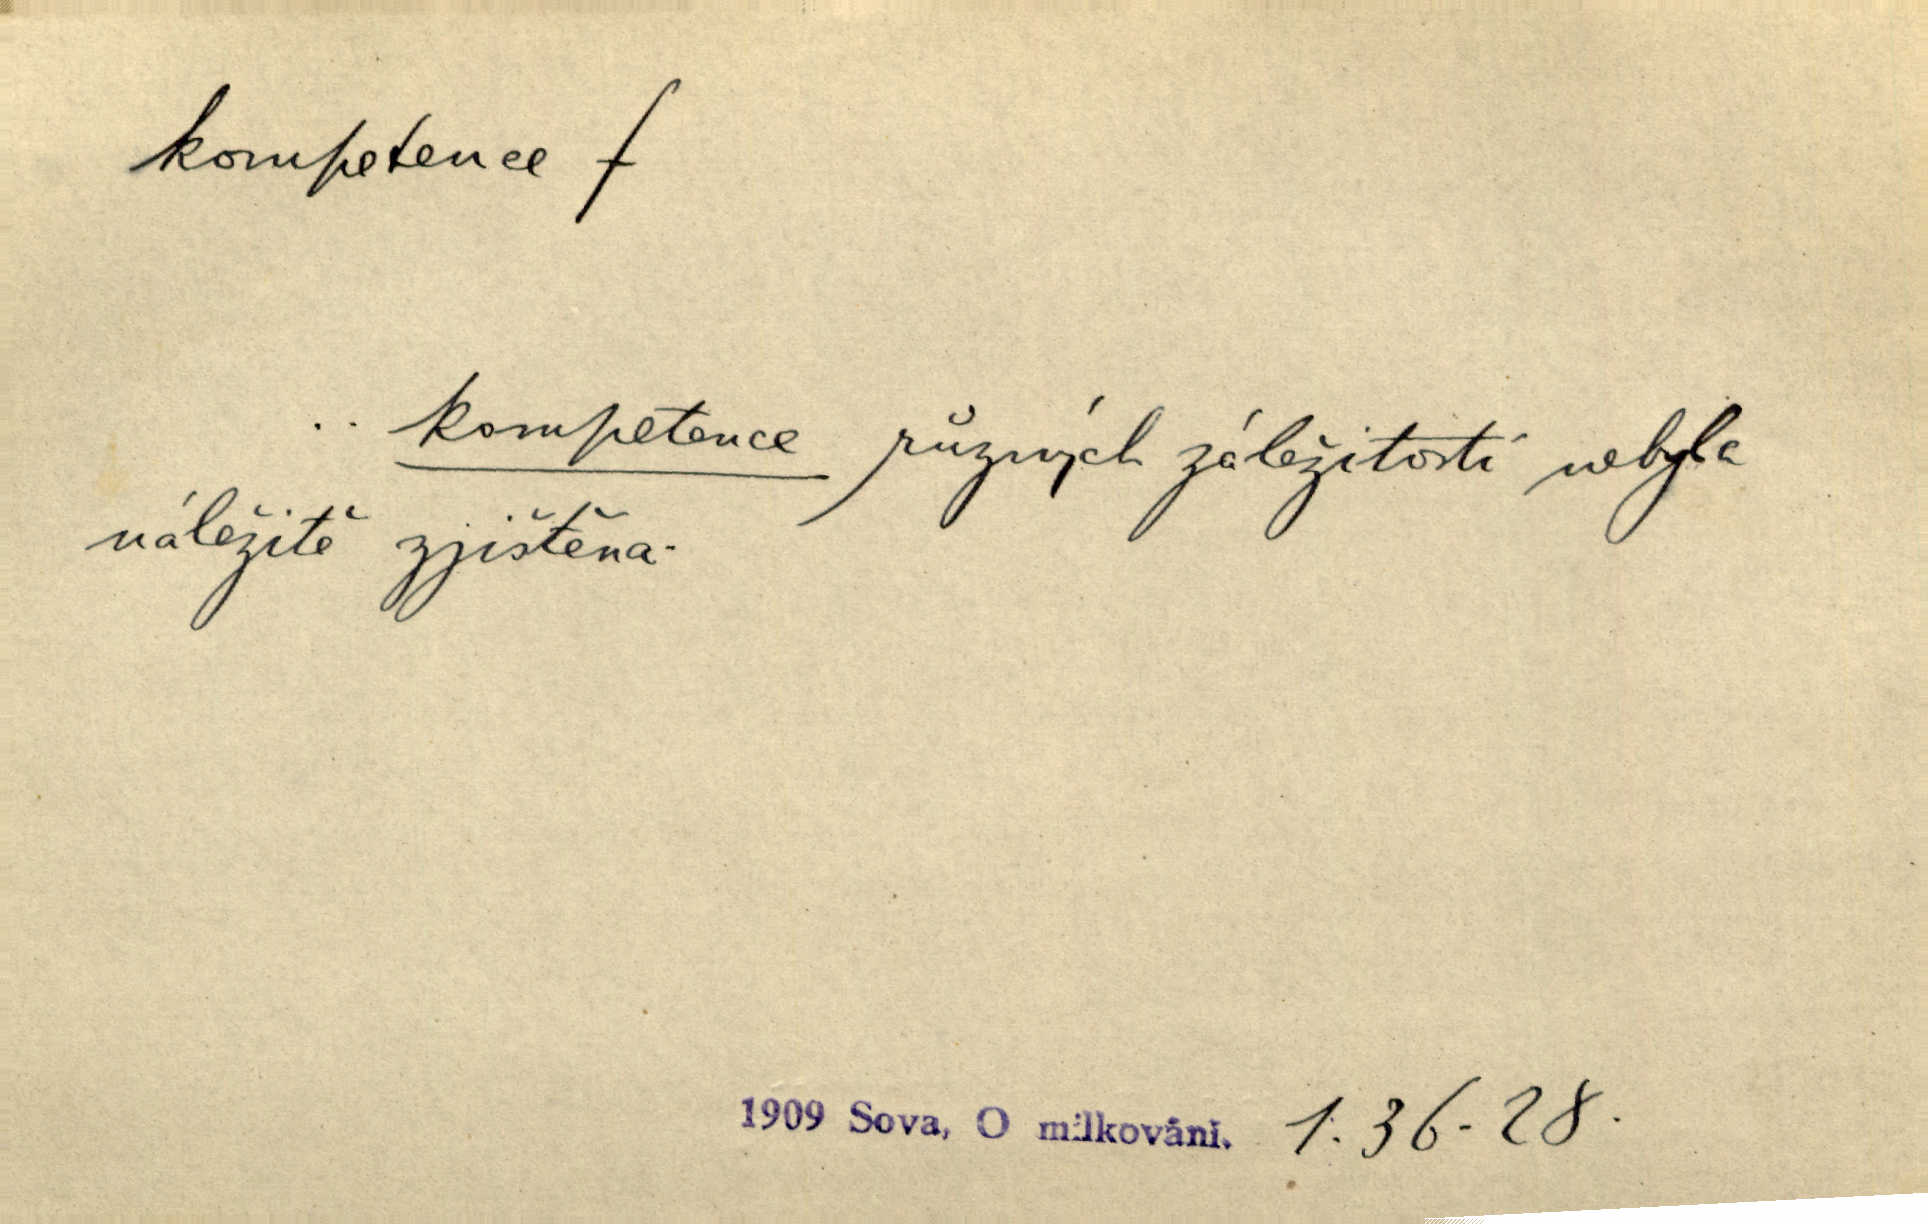 kompetence f
.. kompetence různých záležitostí nebyla
náležitě zjištěna.
1909 Sova, O milkování. 1. 36-28.